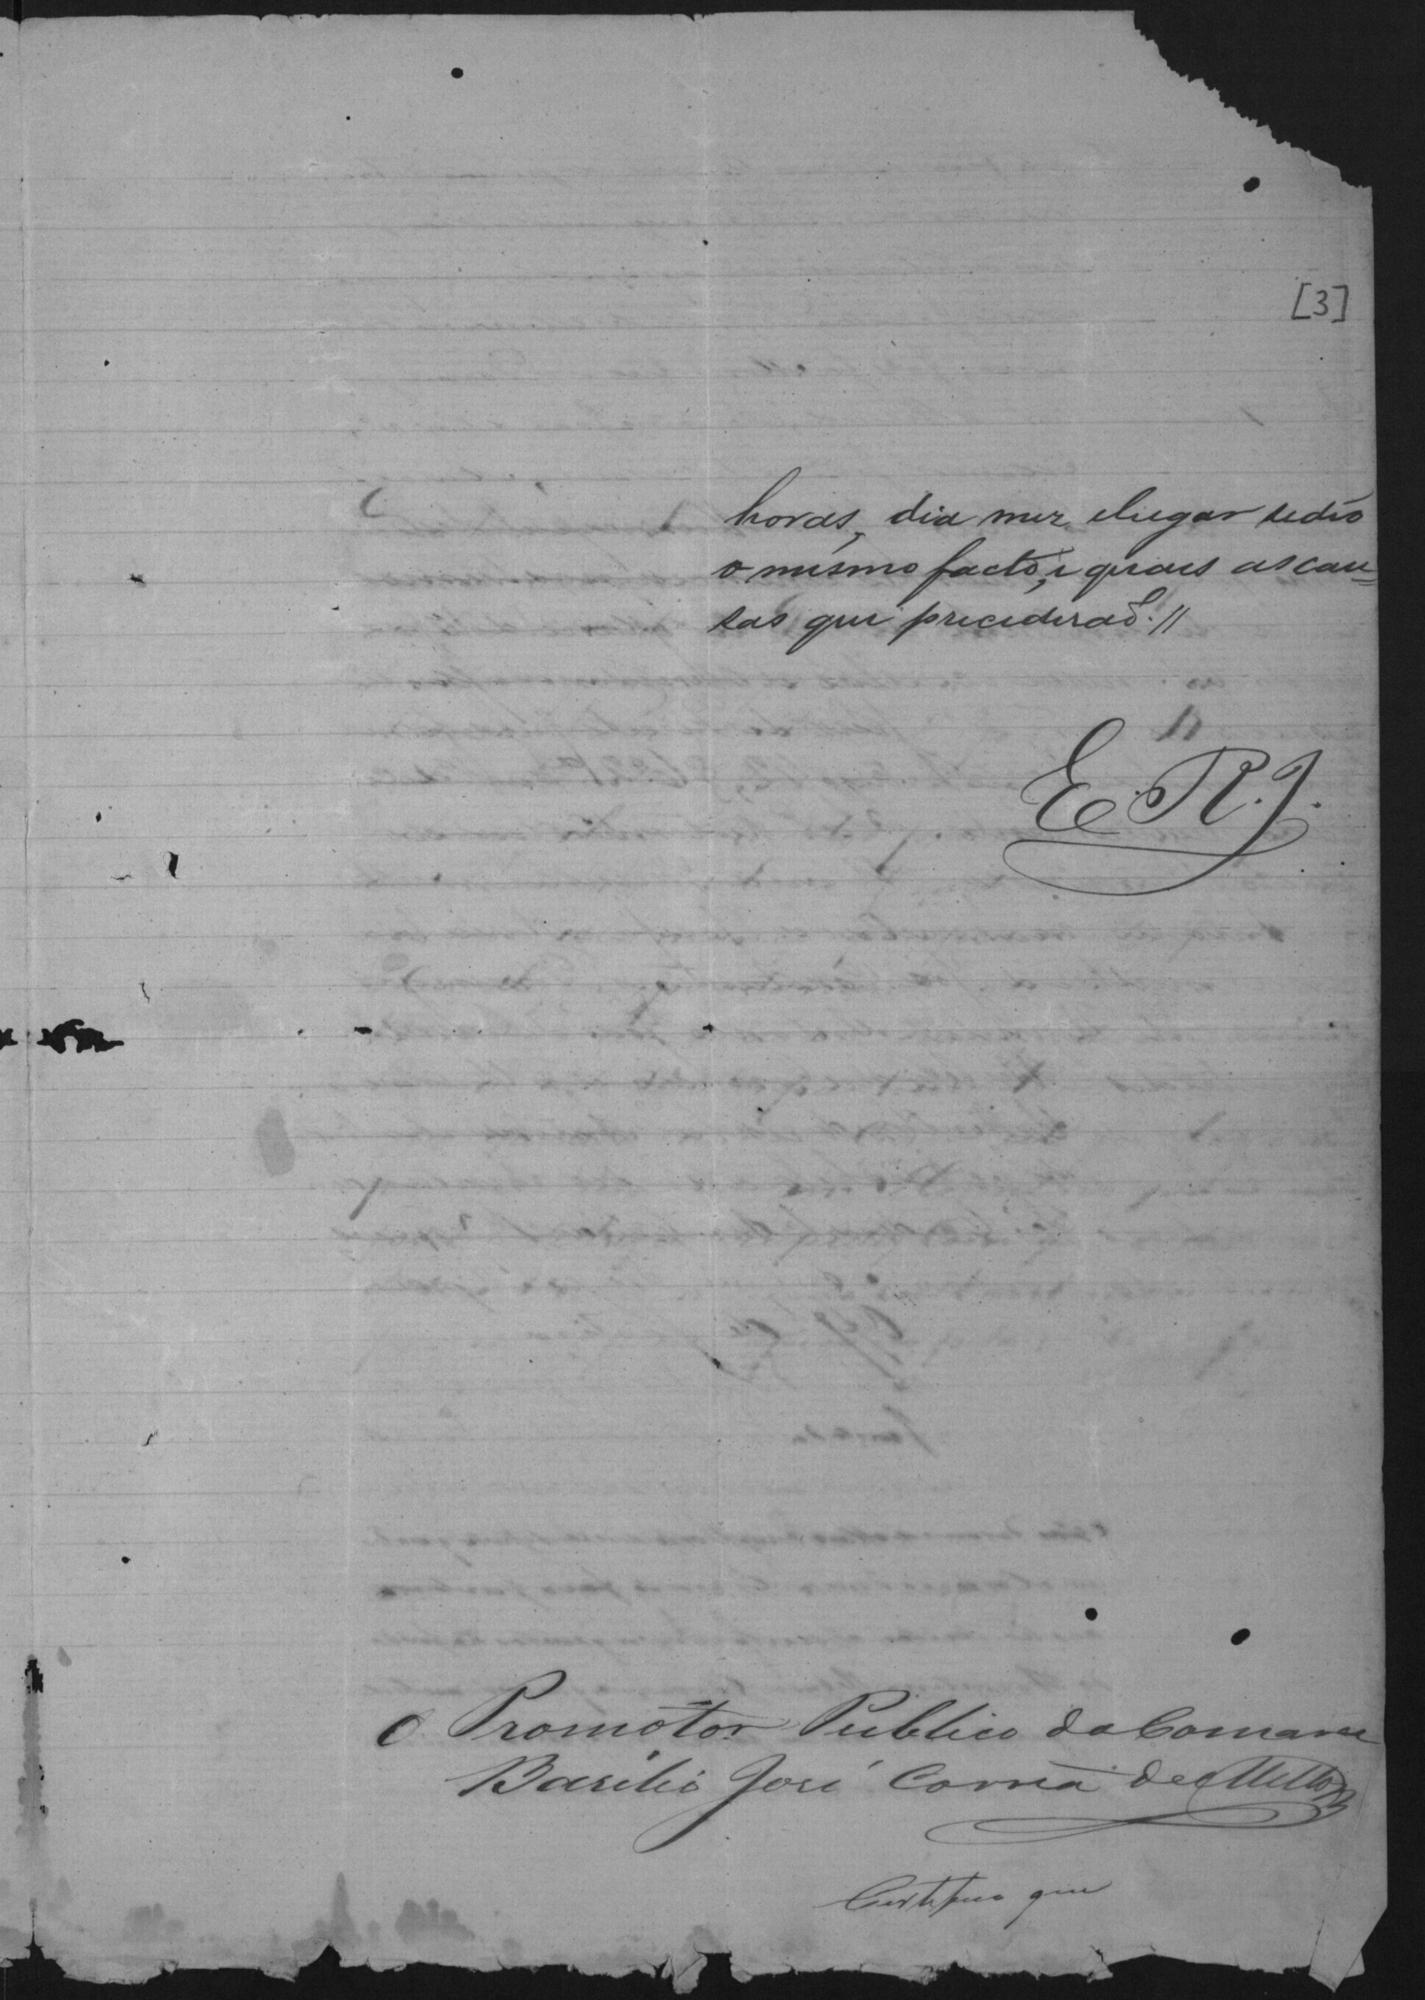 [3]
horas, dia mez elugar sedéo
o mesmo facto, e quaes as cau=
sas que precederaõ.//
E. R. J.
O Promotor Publico da Comarca
Basilio José Corrêa de Mello
Certifico que